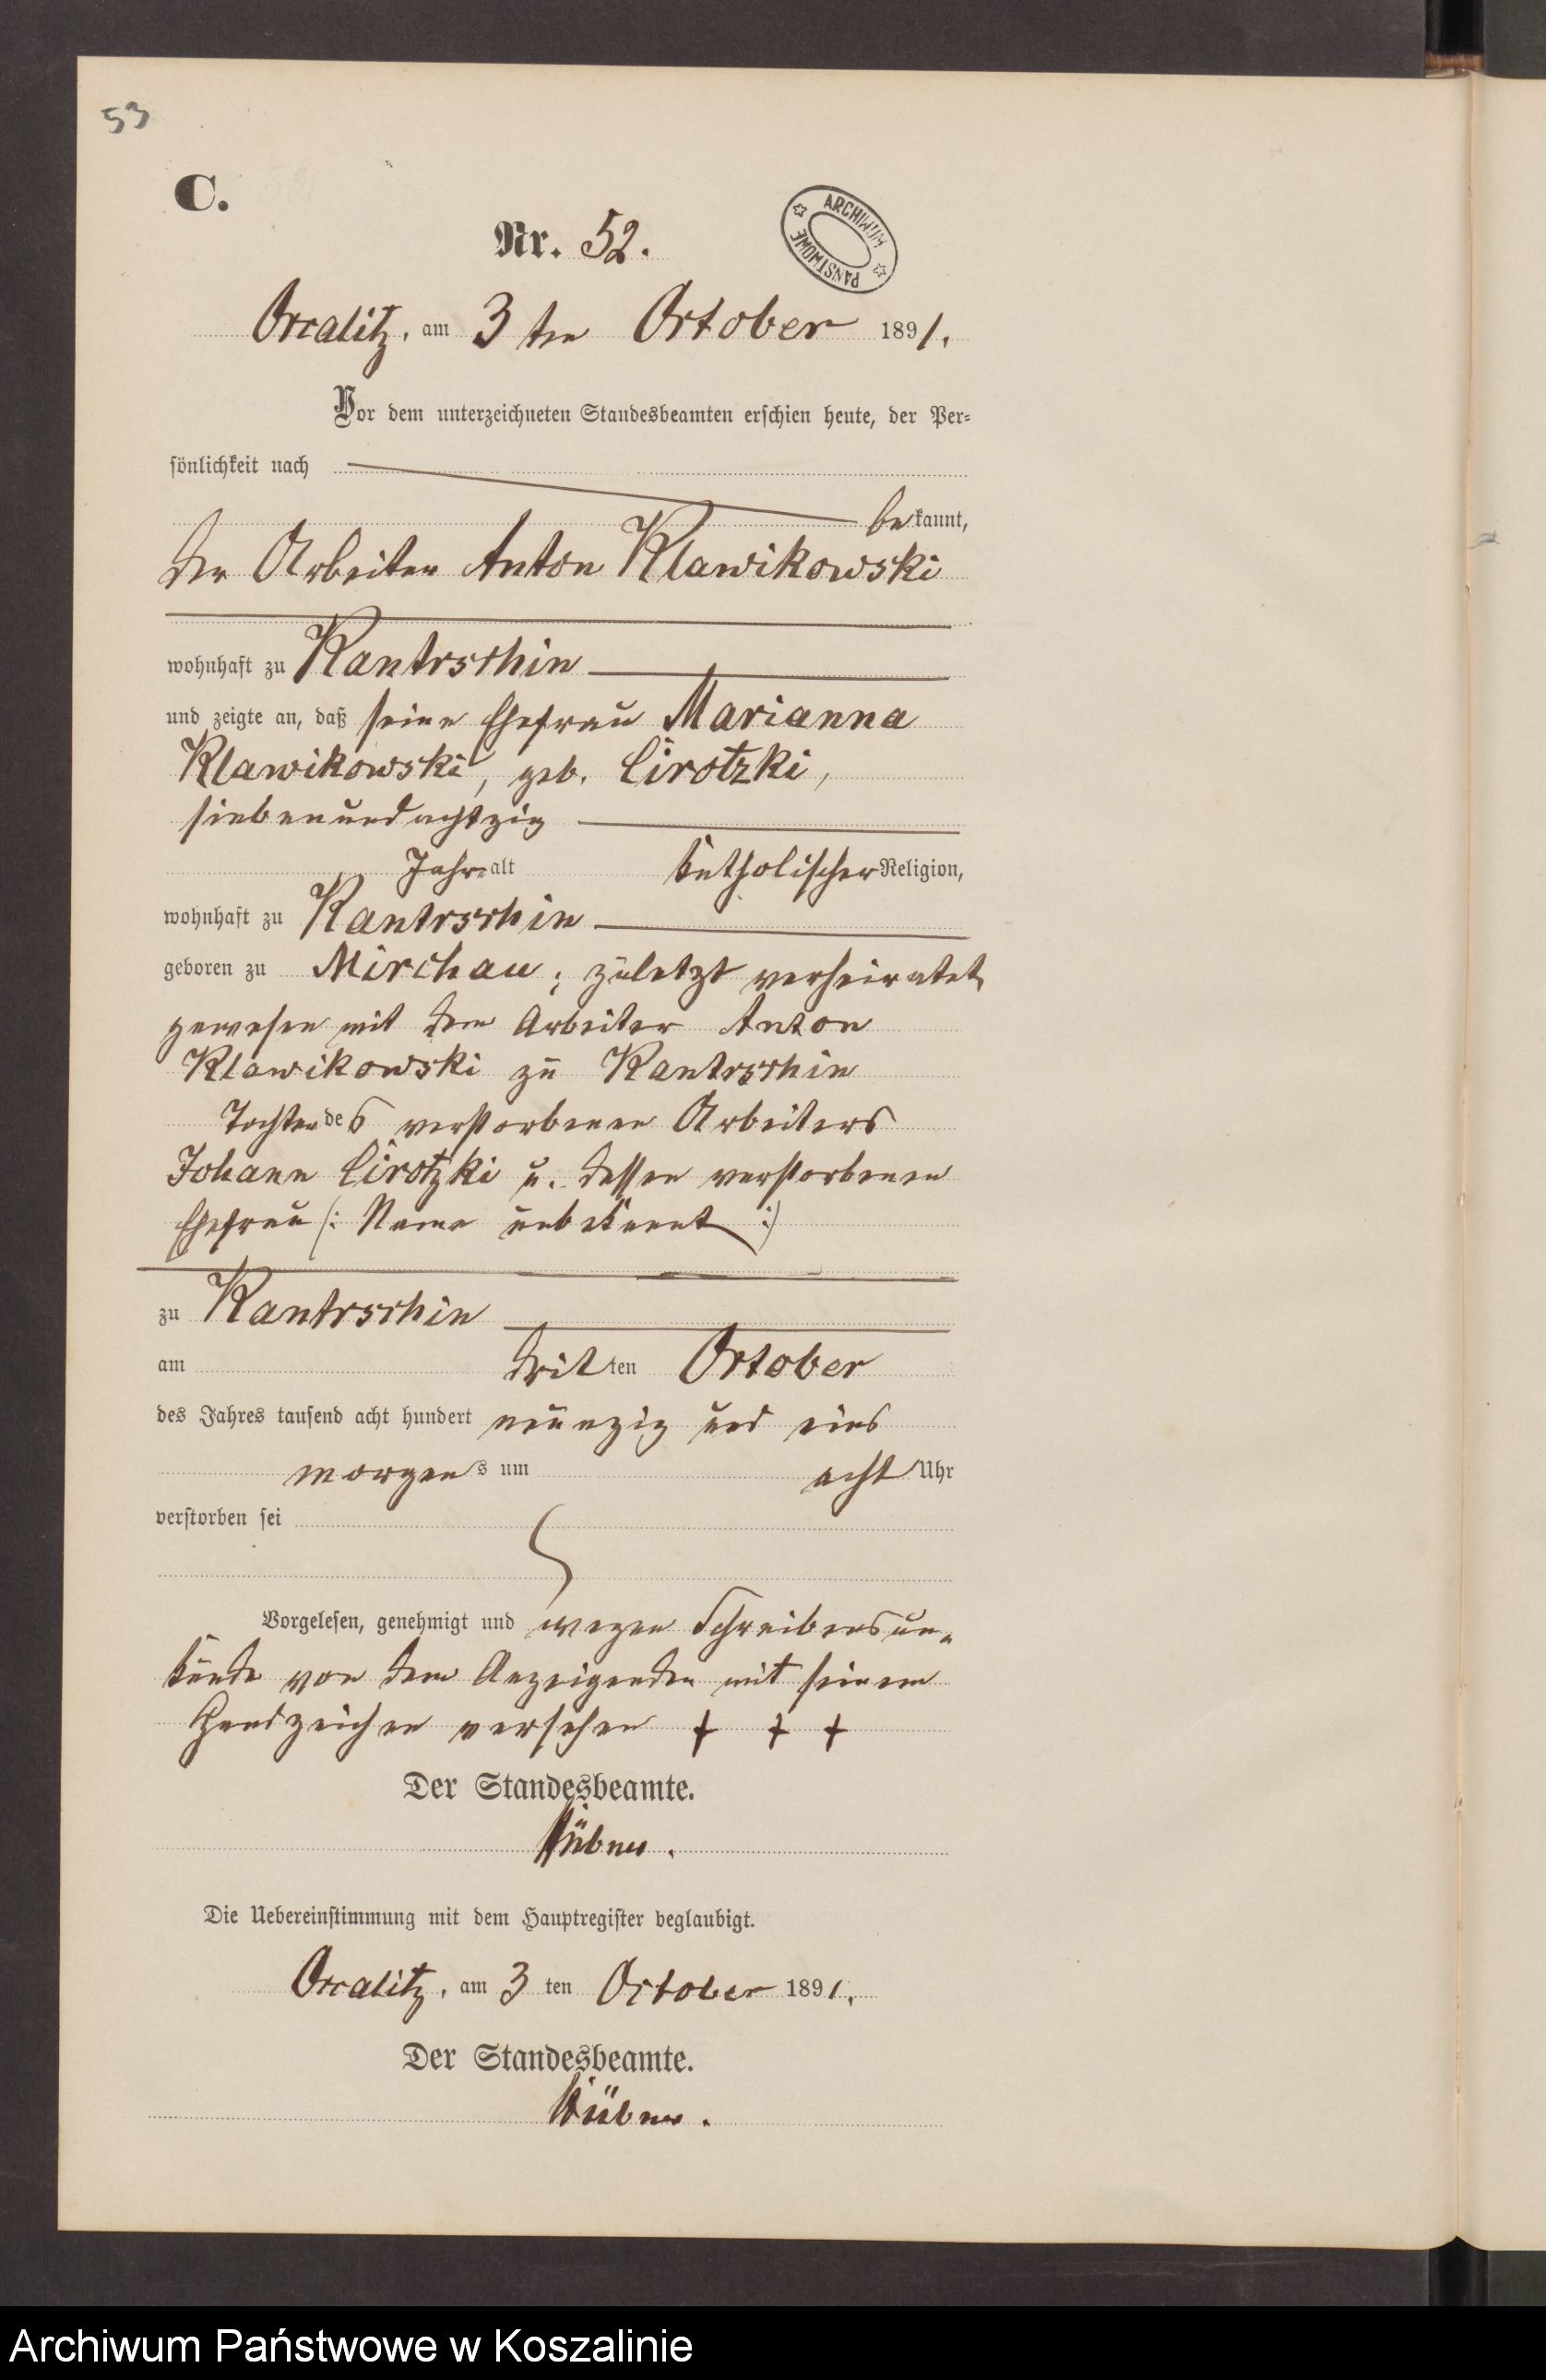 53
C.
Nr. 52.
ARCHIWUM PAŃSTWOWE
Occalitz, am 3 ten October 1891.
Vor dem unterzeichneten Standesbeamten erschien heute, der Per-
sönlichkeit nach
bekannt,
der Arbeiter Anton Klawikowski
wohnhaft zu Kantrschin
und zeigte an, daß seine Ehefrau Marianna
Klawikowski, geb. Cirotzki,
siebenundachtzig
Jahre alt katholischer Religion,
wohnhaft zu Kantrschin
geboren zu Mirchau; zuletzt verheiratet
gewesen mit dem Arbeiter Anton
Klawikowski zu Kantrschin
Tochter des verstorbenen Arbeiters
Johann Cirotzki u. dessen verstorbenen
Ehefrau (: Name unbekannt :)
zu Kantrschin
am dritten October
des Jahres tausend acht hundert neunzig und eins
morgens um acht Uhr
verstorben sei
Vorgelesen, genehmigt und wegen Schreibensun-
kunde von dem Anzeigenden mit seinem
Handzeichen versehen + + +
Der Standesbeamte.
Die Uebereinstimmung mit dem Hauptregister beglaubigt.
Occalitz, am 3 ten October 1891.
Der Standesbeamte.
Archiwum Państwowe w Koszalinie